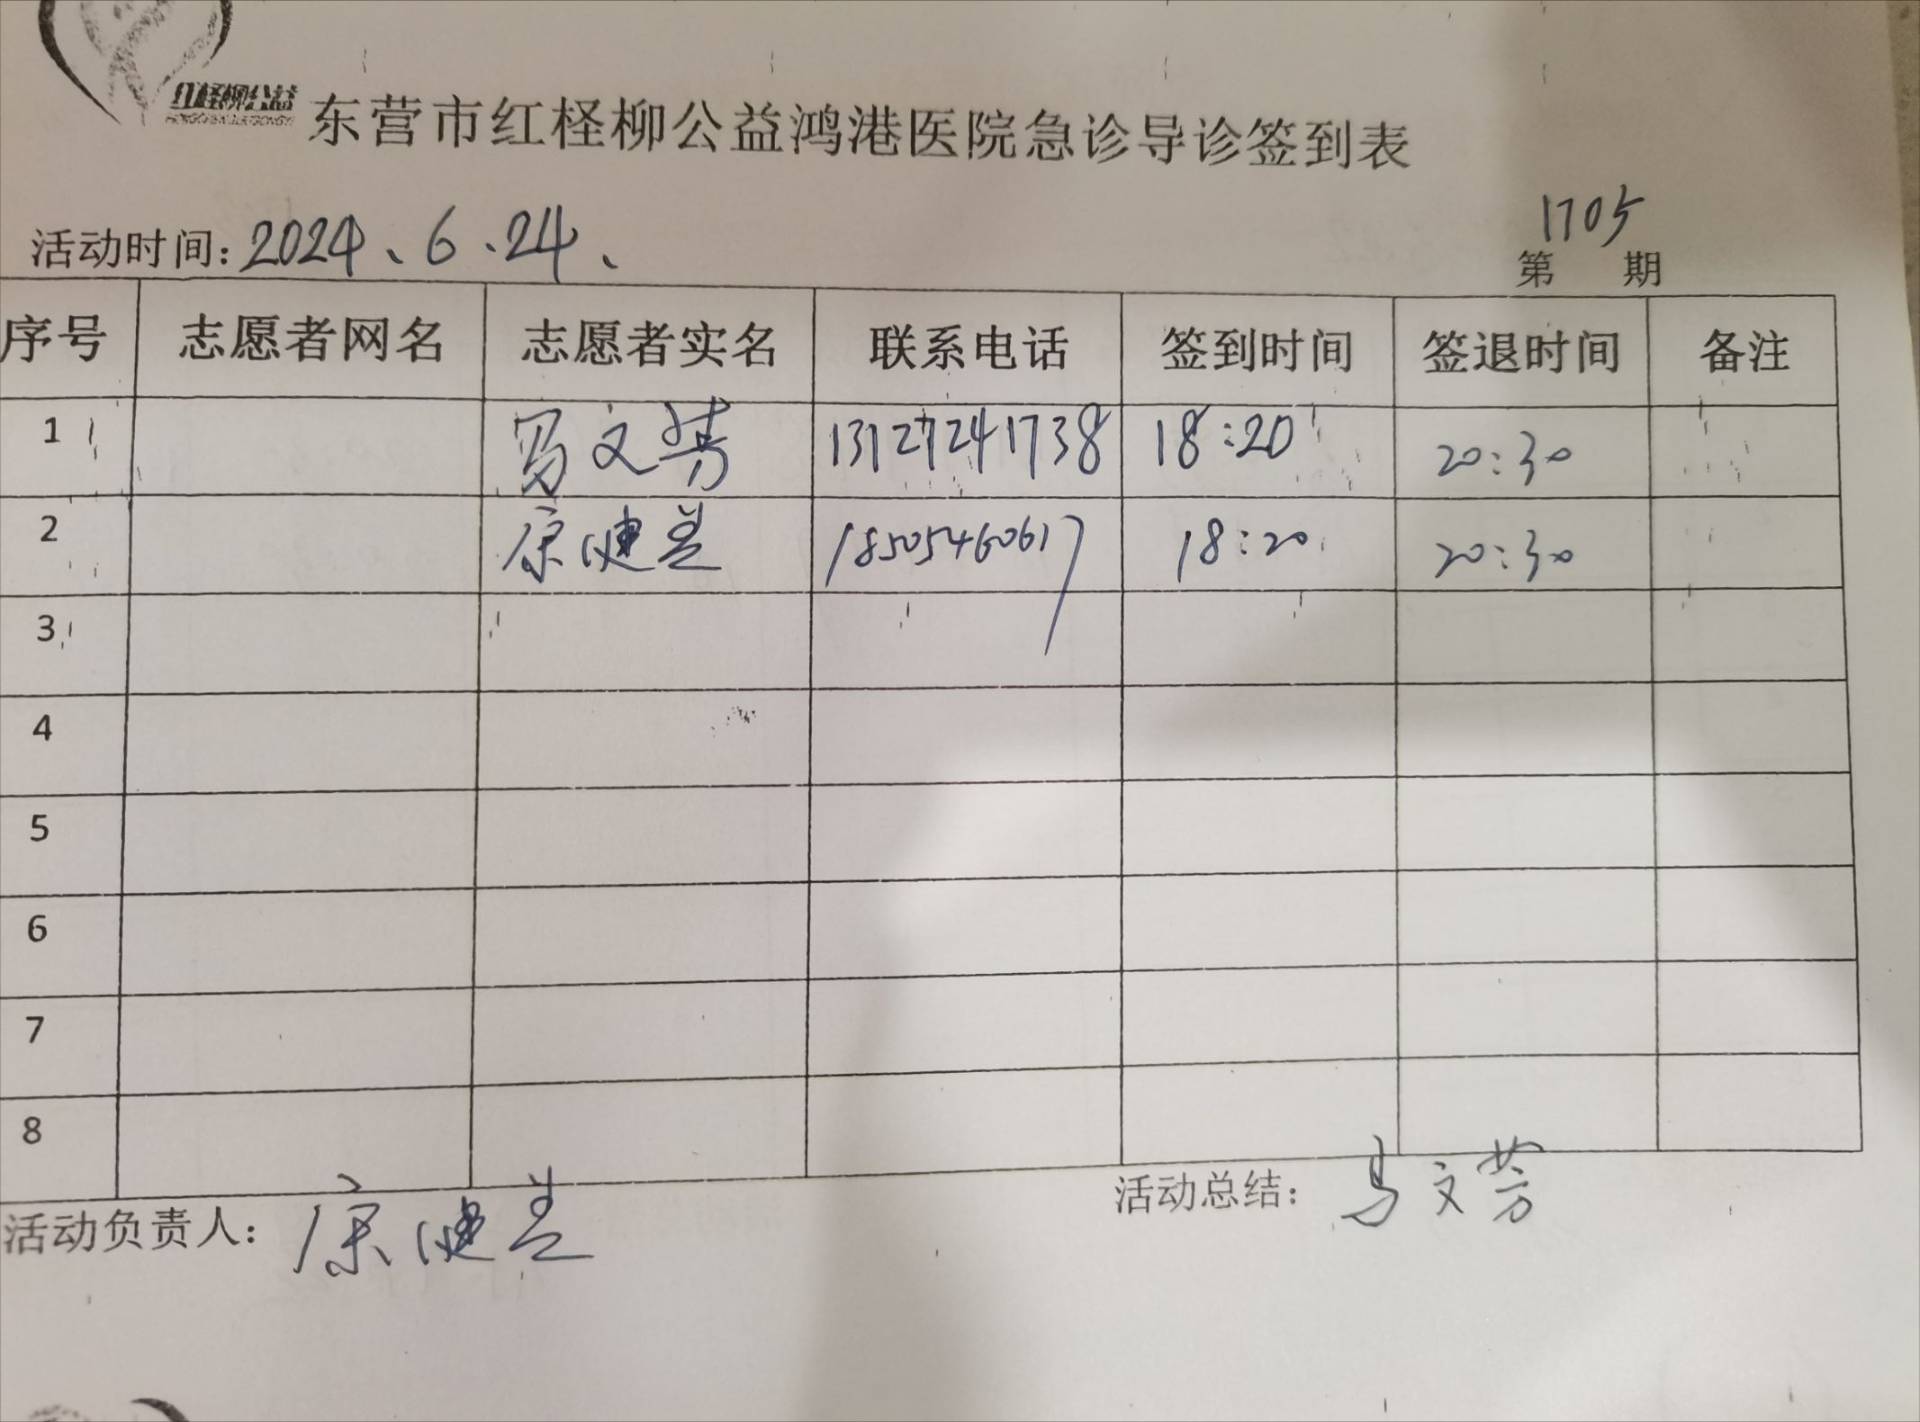 红柽柳公益
东营市红柽柳公益鸿港医院急诊导诊签到表
1705
活动时间：2024、6、24、 第 期
序号 志愿者网名 志愿者实名 联系电话 签到时间 签退时间 备注
1 马文芳 13127241738 18:20 20:30
2 康健美 18505460617 18:20 20:30
3
4
5
6
7
8
活动负责人：康健美 活动总结：马文芳